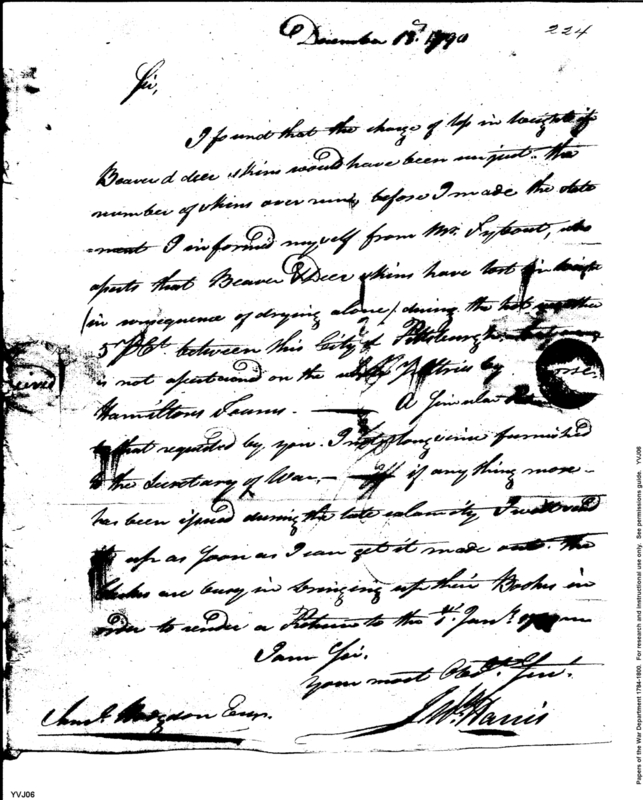 December 18th. 1790
224
Sir,
I found that the charge of lb in weight of
Beaver & deer skins would have been unjust. the
number of skins over runs, before I made the state
ment I informed myself from Mr. Lybout, who
aperts that Beaver & Deer skins have lost in weight
(in consequence of drying alone) during the last
5 P Ct. between this City & Pittsburgh
is not apertained on the Peltries by
Hamiltons Teams. — A Similar
to that requested by you. I not long since furnished
to the Secretary of War, — if any thing more
has been ipued during the late calamity I will send
it up as soon as I can get it made out. the
Clerks are busy in bringing up their Books in
order to render a Return to the 1st. Jany.
I am Sir.
Your most Obdt. Servt.
Saml. Hodgdon Esqr.
J. Harris
Papers of the War Department 1784-1800. For research and instructional use only. See permissions guide. YVJ06
YVJ06